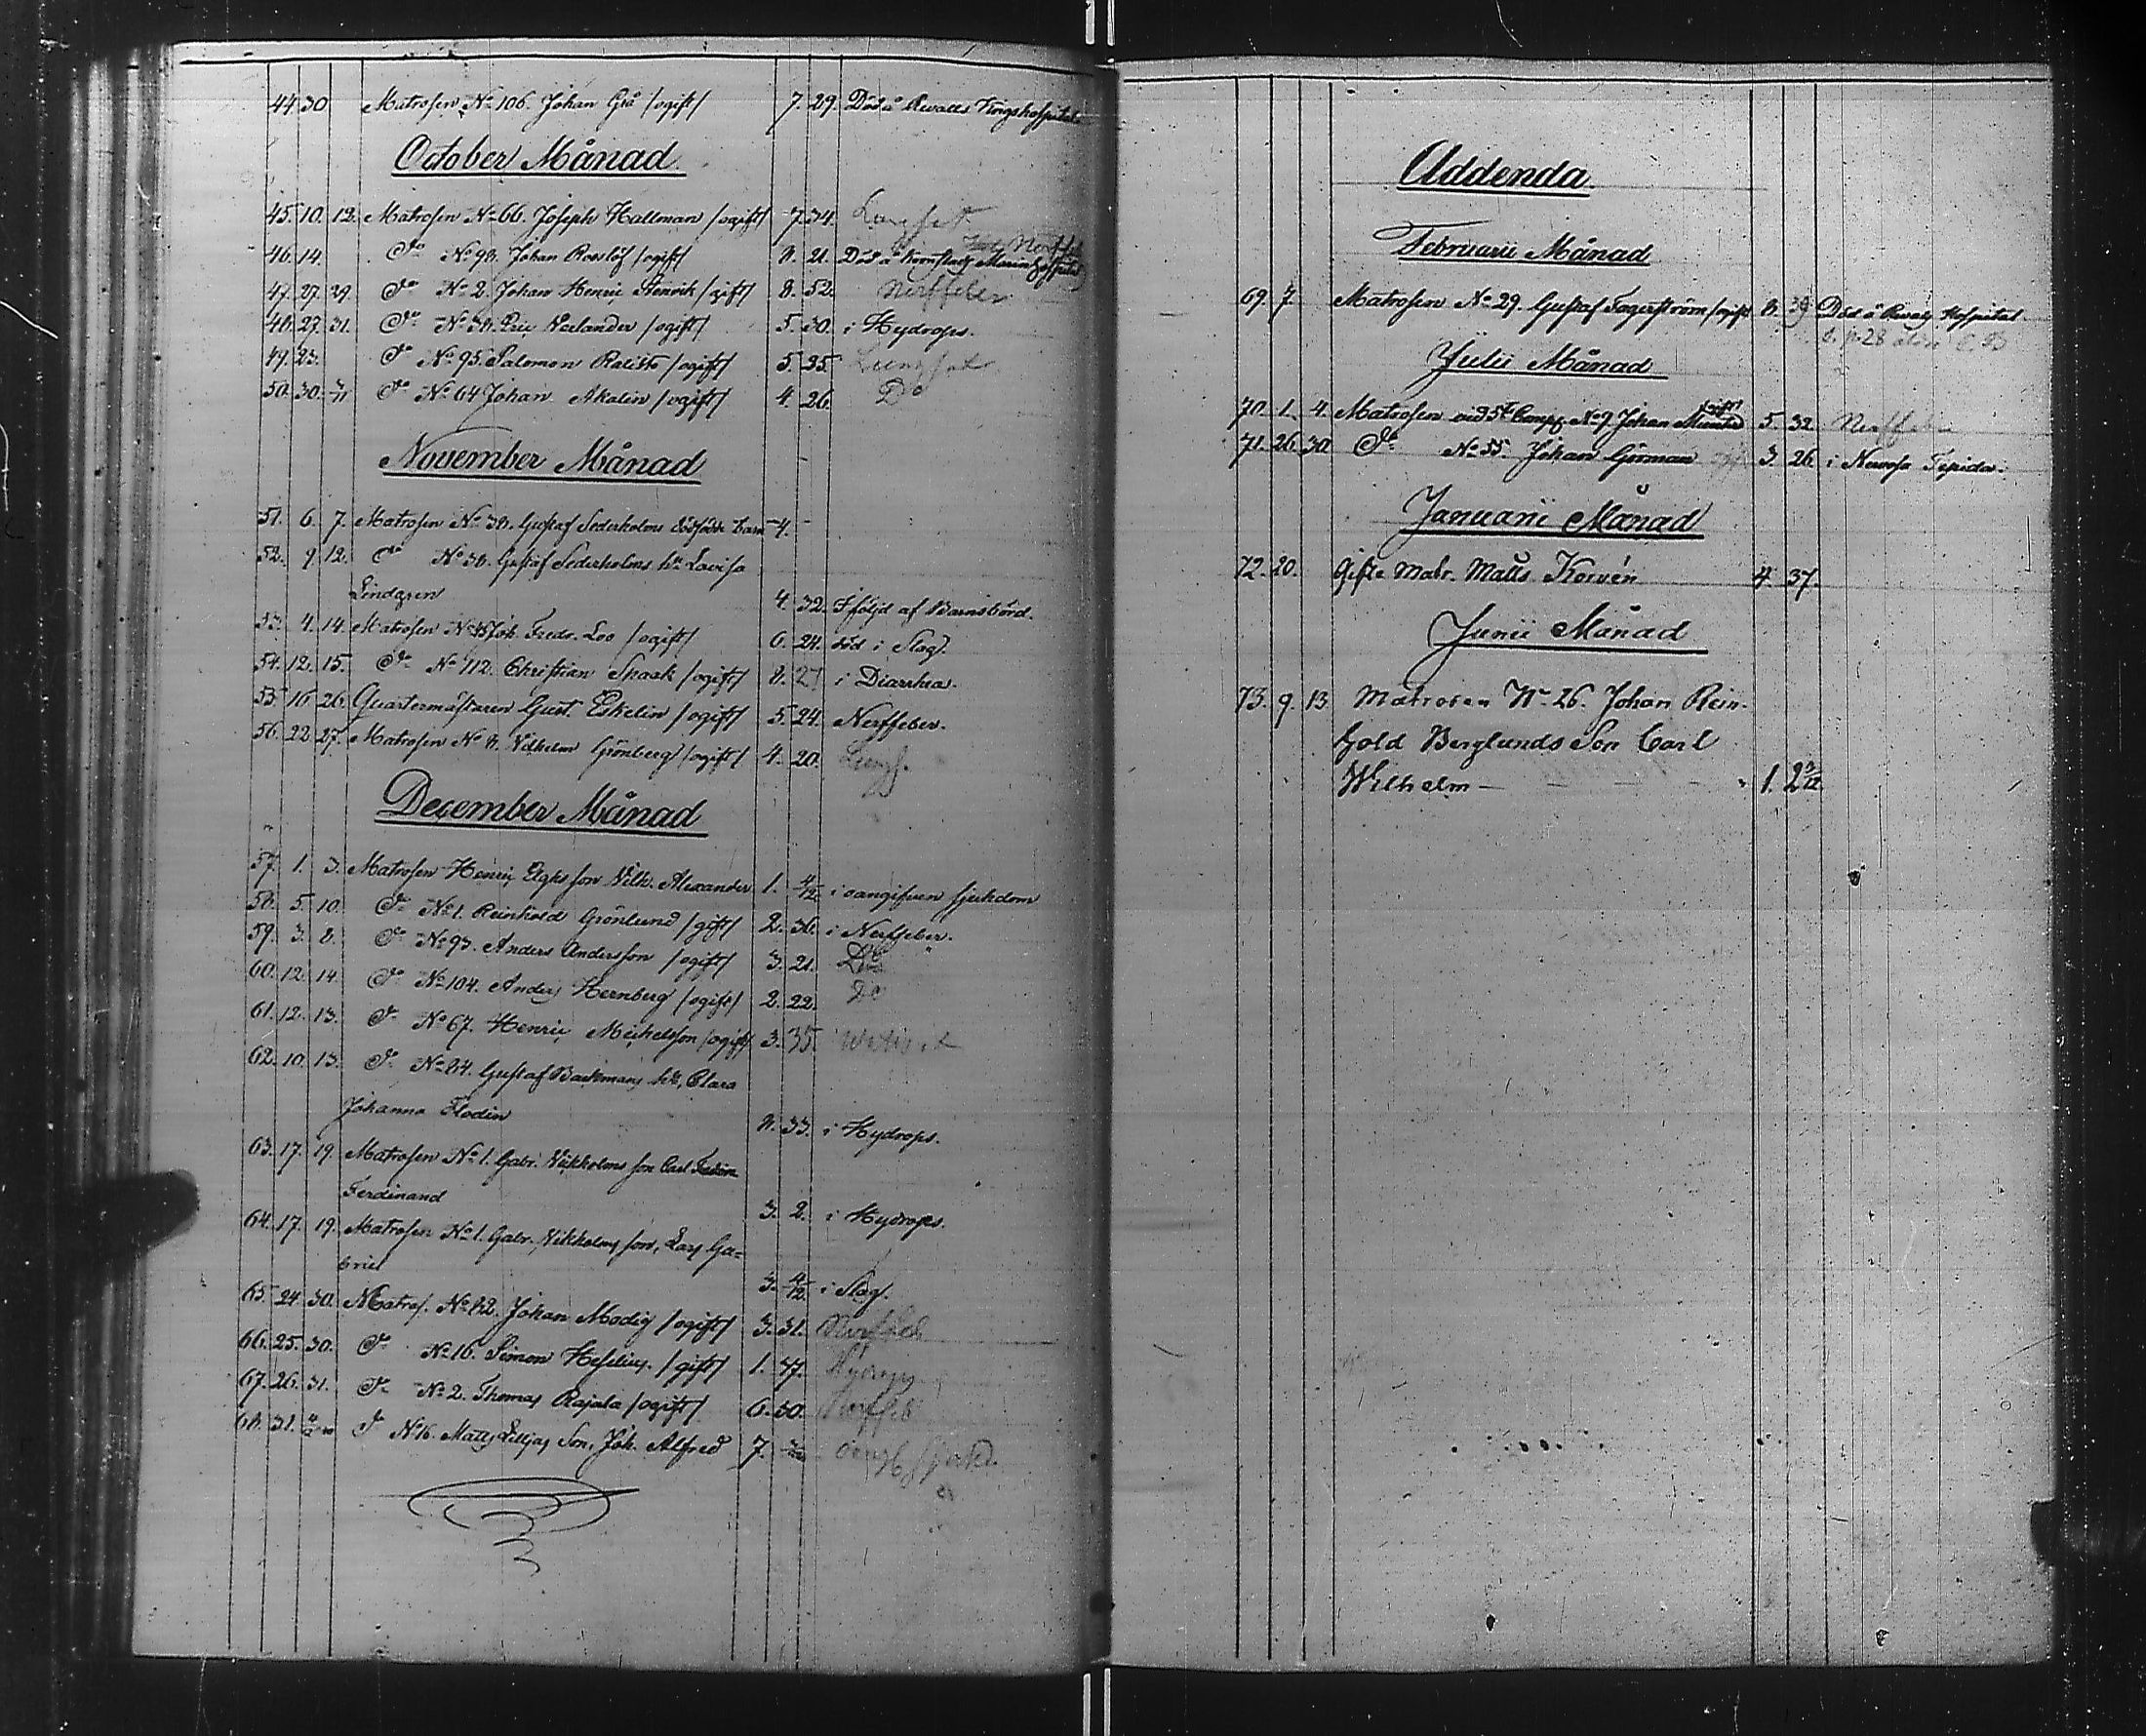 44. 30 Matrosen No 106. Johan Grå /ogift/ 7. 29. Död å Revalls Krigshospital
October Månad
45. 10. 12. Matrosen No 66. Joseph Hallman /ogift/ 7. 34. Lungsot
Nerffeb
46. 14. Do No 98. Johan Roslöf /ogift/ 8. 21. Död å Kronstads Marinhospital
47. 27. 29. Do No 2. Johan Henric Stenvik /gift/ 8. 52. Nerffeber
48. 27. 31. Do No 38. Eric Verlander /ogift/ 5. 30. i Hydrops.
49. 23. Do No 95. Salomon /ogift/ 5. 35. Lungsot
50. 30. 3/11 Do No 64 Johan Akalin /ogift/ 4. 26. Do
November Månad
51. 6. 7. Matrosen No 38. Gustaf Sederholms dödfödde barn 4. -
52. 9. 12. Do No 38. Gustaf Sederholms hu Lovisa
Lindgren 4. 32. I följd af Barnsbörd.
53. 4. 14. Matrosen No 45 Joh. Fredr. Loo /ogift/ 6. 24. död i Slag.
54. 12. 15. Do No 112. Christian Spaak /ogift/ 8. 27 i Diarrhea.
55. 16. 26. Quartermästaren Gust. Eskelin /ogift/ 5. 24. Nerffeber.
56. 22 27. Matrosen No 8. Vilhelm Grönberg /ogift/ 4. 20. Lungs.
December Månad
57. 1. 3. Matrosen Henric Elgs son Vilh. Alexander 1. 4/12 i oangifven sjukdom
58. 5. 10. Do No 1. Reinhold Grönlund /gift/ 2. 36. i Nerffeber.
59. 3. 8. Do No 93. Anders Andersson /ogift/ 3. 21. Do
60. 12. 14. Do No 104. Anders Hernberg /ogift/ 2. 22. Do
61. 12. 13. Do No 67. Henric Michelsson /ogift/ 3. 35.
62. 10. 13. Do No 84. Gustaf Backmans hu, Clara
Johanna Flodin 8. 33. i Hydrops.
63. 17. 19. Matrosen No 1. Gabr. Vikholms son Carl
Ferdinand 3. 2. i Hydrops.
64. 17. 19. Matrosen No 1. Gabr. Vikholms son, Lars Ga=
briel 3. 4/12 i Slag.
65. 24. 30. Matros. No 82. Johan Modig /ogift/ 3. 31. Nerffeb
66. 25. 30. Do No 16. Simon Heselius. /gift/ 1. 47. Hydrops
67. 26. 31. Do No 2. Thomas Rajala /ogift/ 6. 30. Nerffeb
68. 31. Do No 16. Matts Liljas Son, Joh. Alfred 7.
Addenda
Februarii Månad
69. 7. Matrosen No 29. Gustaf Fagerström /ogift 8. 39 Död å Revals Hospital.
Julii Månad
/gift/
70. 1. 4. Matrosen vid 5te Comp. No 9. Johan 5. 32. Nerffeber
71. 26. 30. Do No 55. Johan Görman 3. 26. i Nervosa
Januarii Månad
72. 20. Gifte Matr. Matts Korvén 4. 37.
Junii Månad
73. 9. 13. Matrosen No 26. Johan Rein-
hold Berglunds Son Carl
Wilhelm — 1. 2 3/12